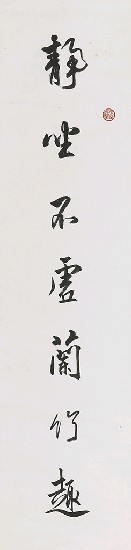 静坐不虚蘭竹趣